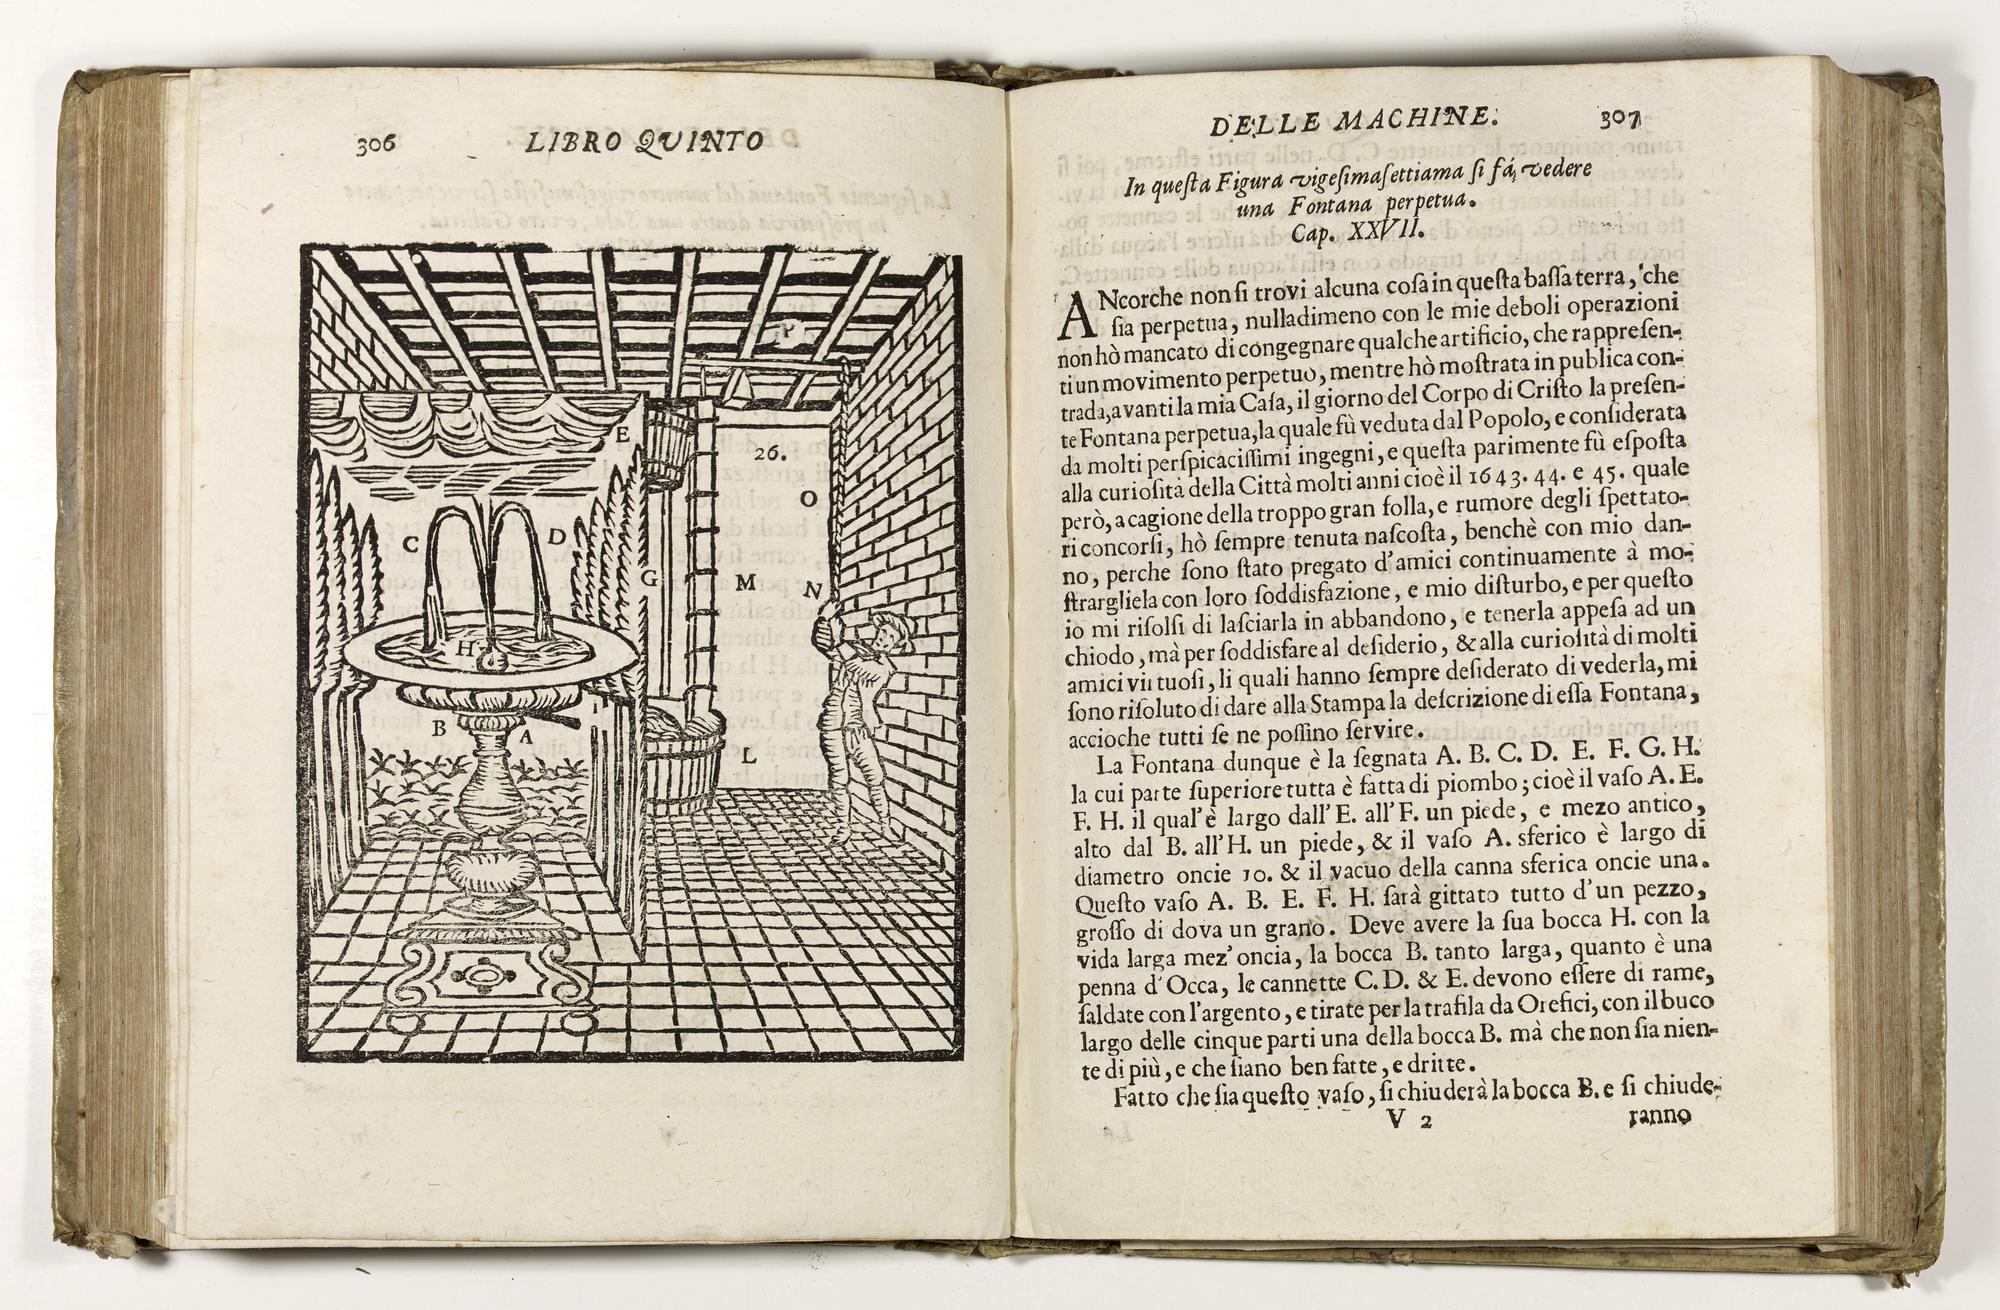 306
LIBRO QVINTO
P
E
26.
O
C
D
G
M
N
H
I
B
A
L
DELLE MACHINE.
307
In queſta Figura vigeſimaſettiama ſi fá vedere
una Fontana perpetua.
Cap. XXVII.
ANcorche non ſi trovi alcuna coſa in queſta baſſa terra, che
ſia perpetua, nulladimeno con le mie deboli operazioni
non hò mancato di congegnare qualche artificio, che rappreſen-
ti un movimento perpetuo, mentre hò moſtrata in publica con-
trada, avanti la mia Caſa, il giorno del Corpo di Criſto la preſen-
te Fontana perpetua, la quale fù veduta dal Popolo, e conſiderata
da molti perſpicaciſſimi ingegni, e queſta parimente fù eſpoſta
alla curioſità della Città molti anni cioè il 1643. 44. e 45. quale
però, a cagione della troppo gran folla, e rumore degli ſpettato-
ri concorſi, hò ſempre tenuta naſcoſta, benchè con mio dan-
no, perche ſono ſtato pregato d'amici continuamente à mo-
ſtrargliela con loro ſoddisfazione, e mio diſturbo, e per queſto
io mi riſolſi di laſciarla in abbandono, e tenerla appeſa ad un
chiodo, mà per ſoddisfare al deſiderio, & alla curioſità di molti
amici virtuoſi, li quali hanno ſempre deſiderato di vederla, mi
ſono riſoluto di dare alla Stampa la deſcrizione di eſſa Fontana,
accioche tutti ſe ne poſſino ſervire.
La Fontana dunque è la ſegnata A. B. C. D. E. F. G. H.
la cui parte ſuperiore tutta è fatta di piombo; cioè il vaſo A. E.
F. H. il qual'è largo dall' E. all' F. un piede, e mezo antico,
alto dal B. all' H. un piede, & il vaſo A. sferico è largo di
diametro oncie 10. & il vacuo della canna sferica oncie una.
Queſto vaſo A. B. E. F. H. ſarà gittato tutto d'un pezzo,
groſſo di dova un grano. Deve avere la ſua bocca H. con la
vida larga mez' oncia, la bocca B. tanto larga, quanto è una
penna d'Occa, le cannette C. D. & E. devono eſſere di rame,
ſaldate con l'argento, e tirate per la trafila da Orefici, con il buco
largo delle cinque parti una della bocca B. mà che non ſia nien-
te di più, e che ſiano ben fatte, e dritte.
Fatto che ſia queſto vaſo, ſi chiuderà la bocca B. e ſi chiude-
V 2
ranno